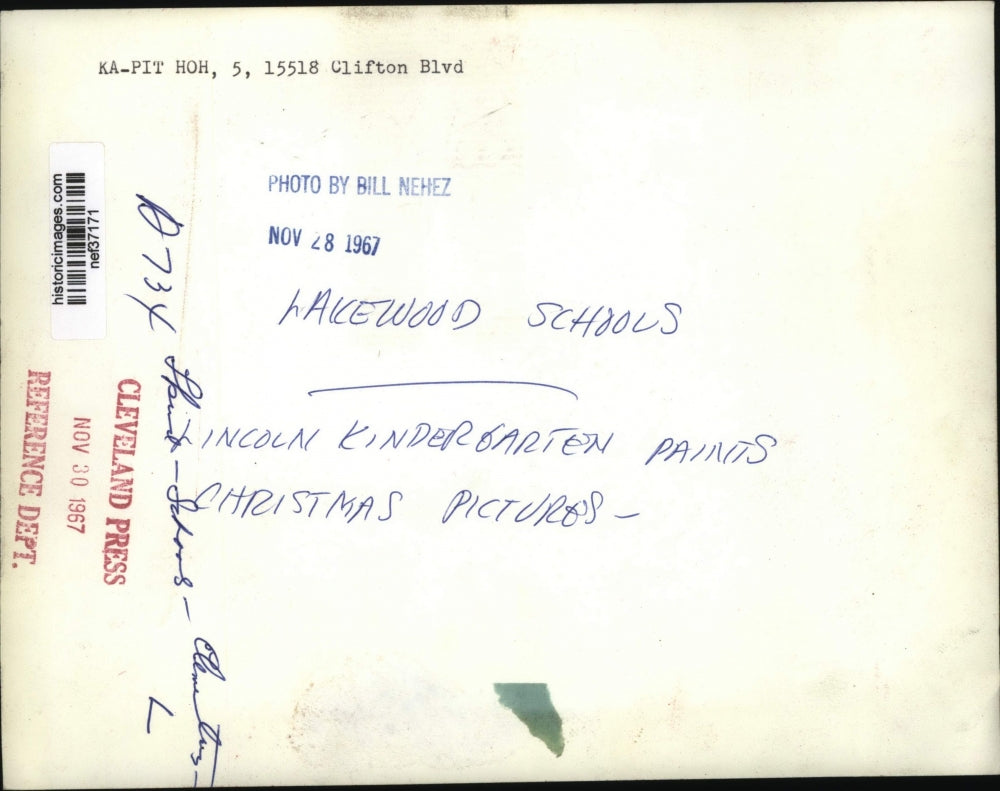 KA-PIT HOH, 5, 15518 Clifton Blvd
historicimages.com
nef37171
PHOTO BY BILL NEHEZ
NOV 28 1967
LAKEWOOD SCHOOLS
LINCOLN KINDERGARTEN PAINTS
CHRISTMAS PICTURES -
D734 - Schools - Elementary -
L
CLEVELAND PRESS
NOV 30 1967
REFERENCE DEPT.